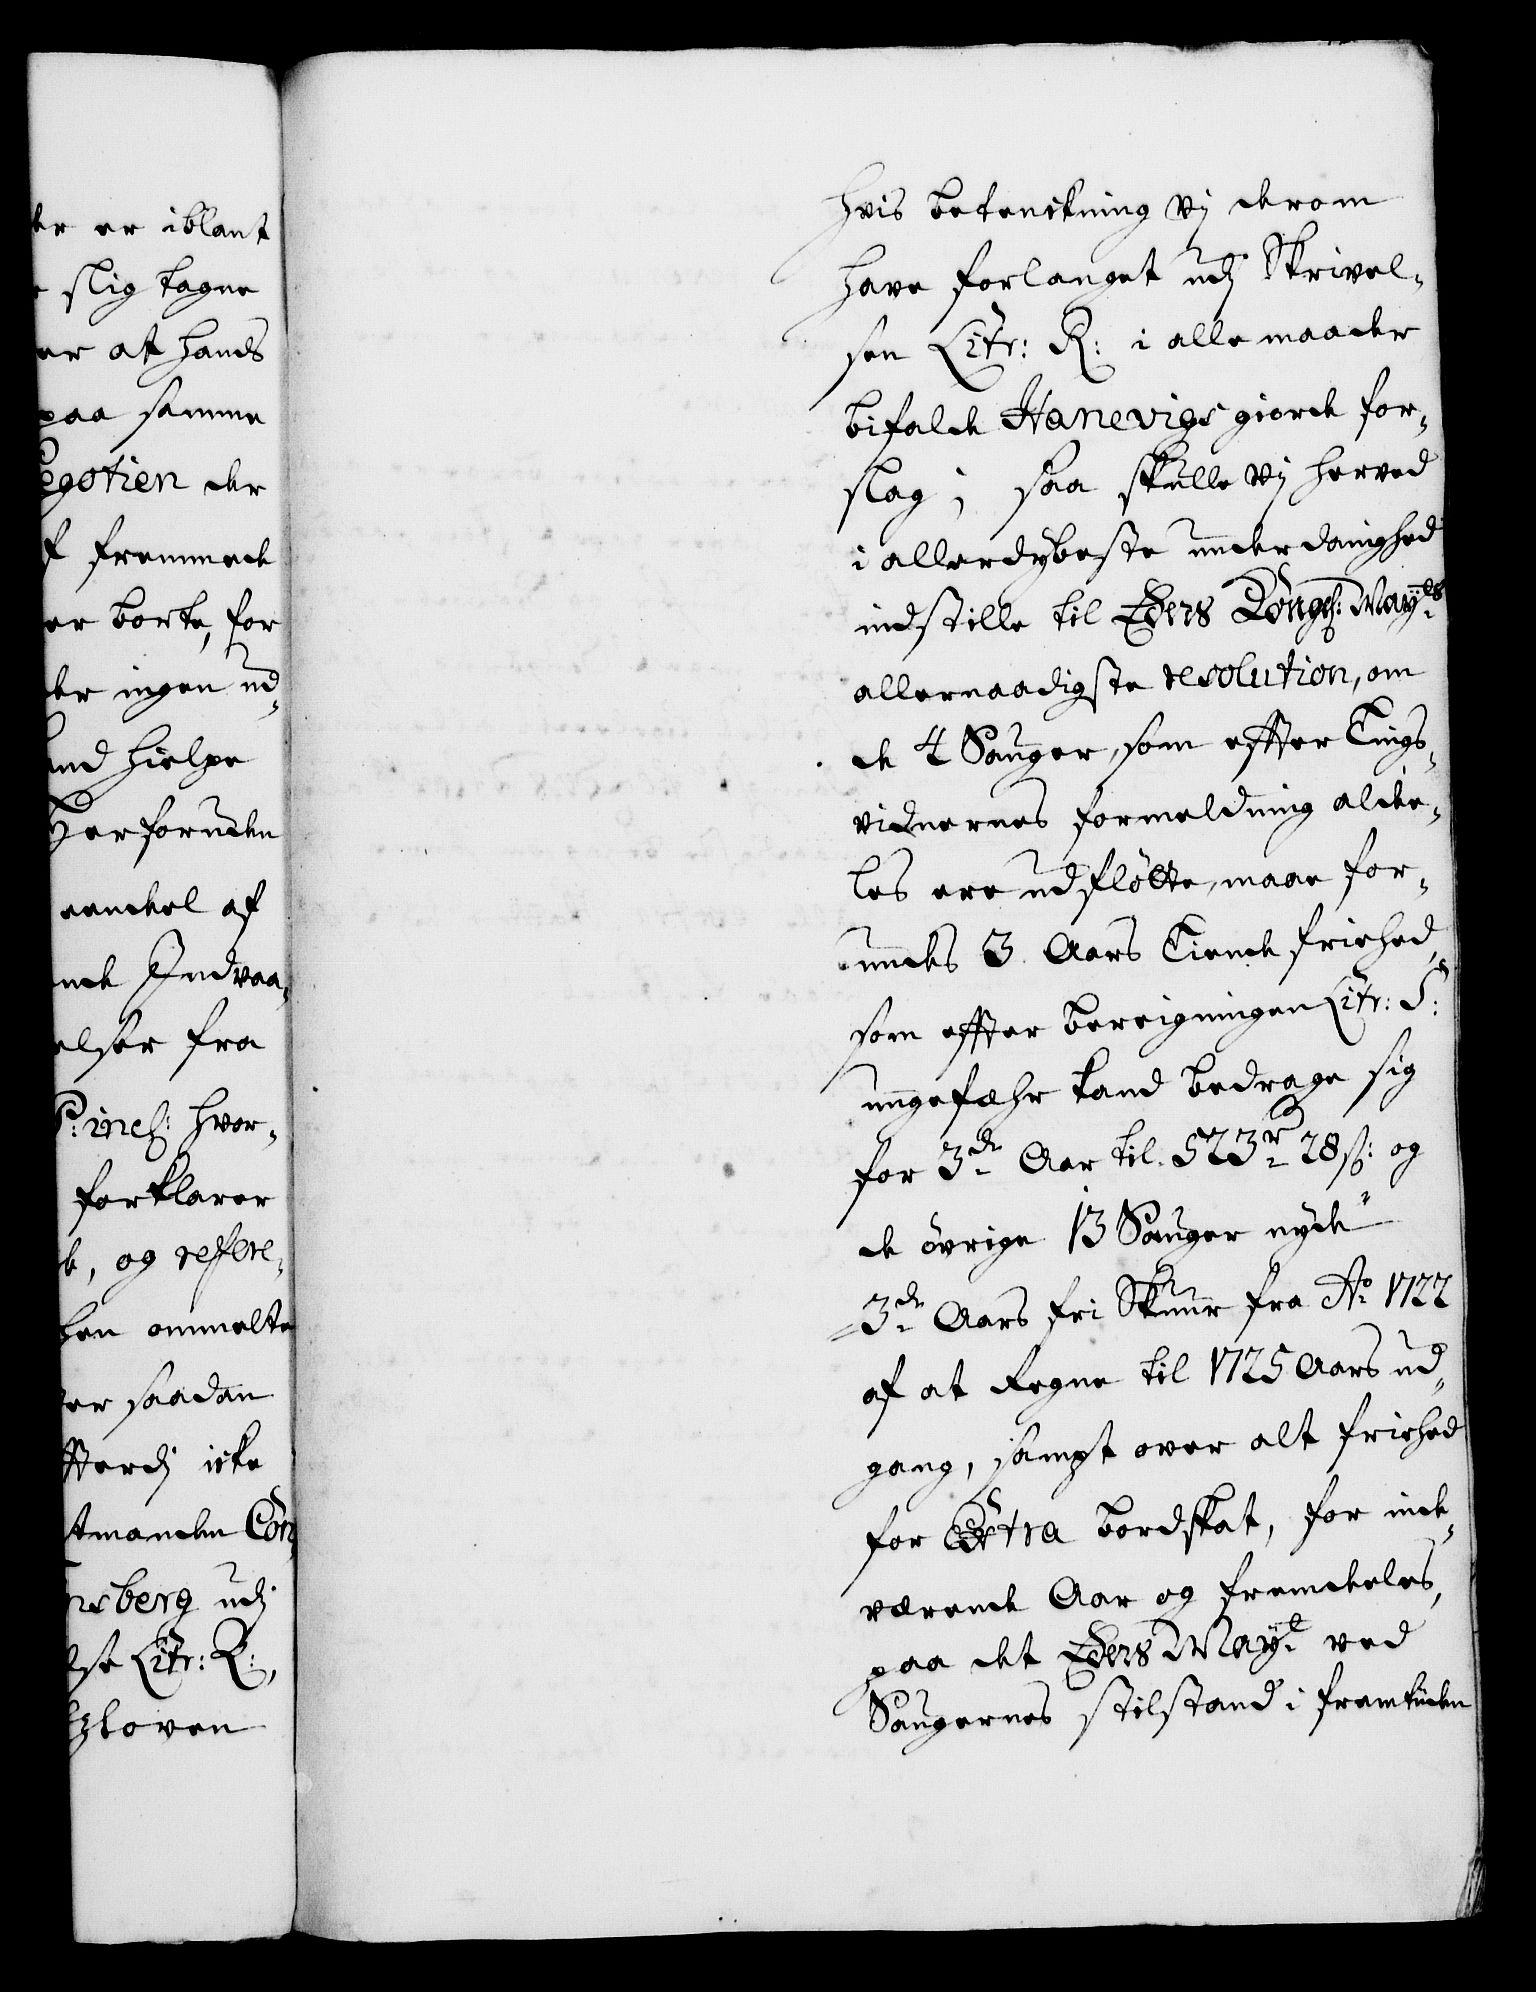 er er iblant
slig tagne
er at hands
paa samme
egotien der
f fremmede
er borte, for
der ingen ud-
and hielpe
Herforuden
eendel af
nde Indvaa-
elser fra
P: incl: hvor-
forklarer
e, og refere-
hen ommelte
er saadan
fterdj icke
tmanden Con
nsberg udj
lse Litr: R:,
tzloven
hvis betenckning vj derom
have forlanget udj Skrivel-
sen Litr: R: i alle maader
bifalde Hanevigs giorde for-
slag; saa skulle vj herved
i allerdybeste underdanighed
indstille til Eders Kongel: Mayts
allernaadigste resolution, om
de 4 Sauger, som effter Tings-
vidnernes formeldning aldee-
les ere udflötte, maae for-
undes 3 Aars Tiende friehed,
som effter beregningen Litr: S:
ungefæhr kand bedrage sig
for 3de Aar til 523 r 28 s: og
de övrige 13 Sauger nyde
3de Aars fri Skuur fra Ao 1722
af at Regne til 1725 Aars ud-
gang, sampt over alt friehed
for Extra bordskat, for inde-
værende Aar og fremdeeles,
paa det Eders Mayt ved
Saugernes stilstand i fremtiiden